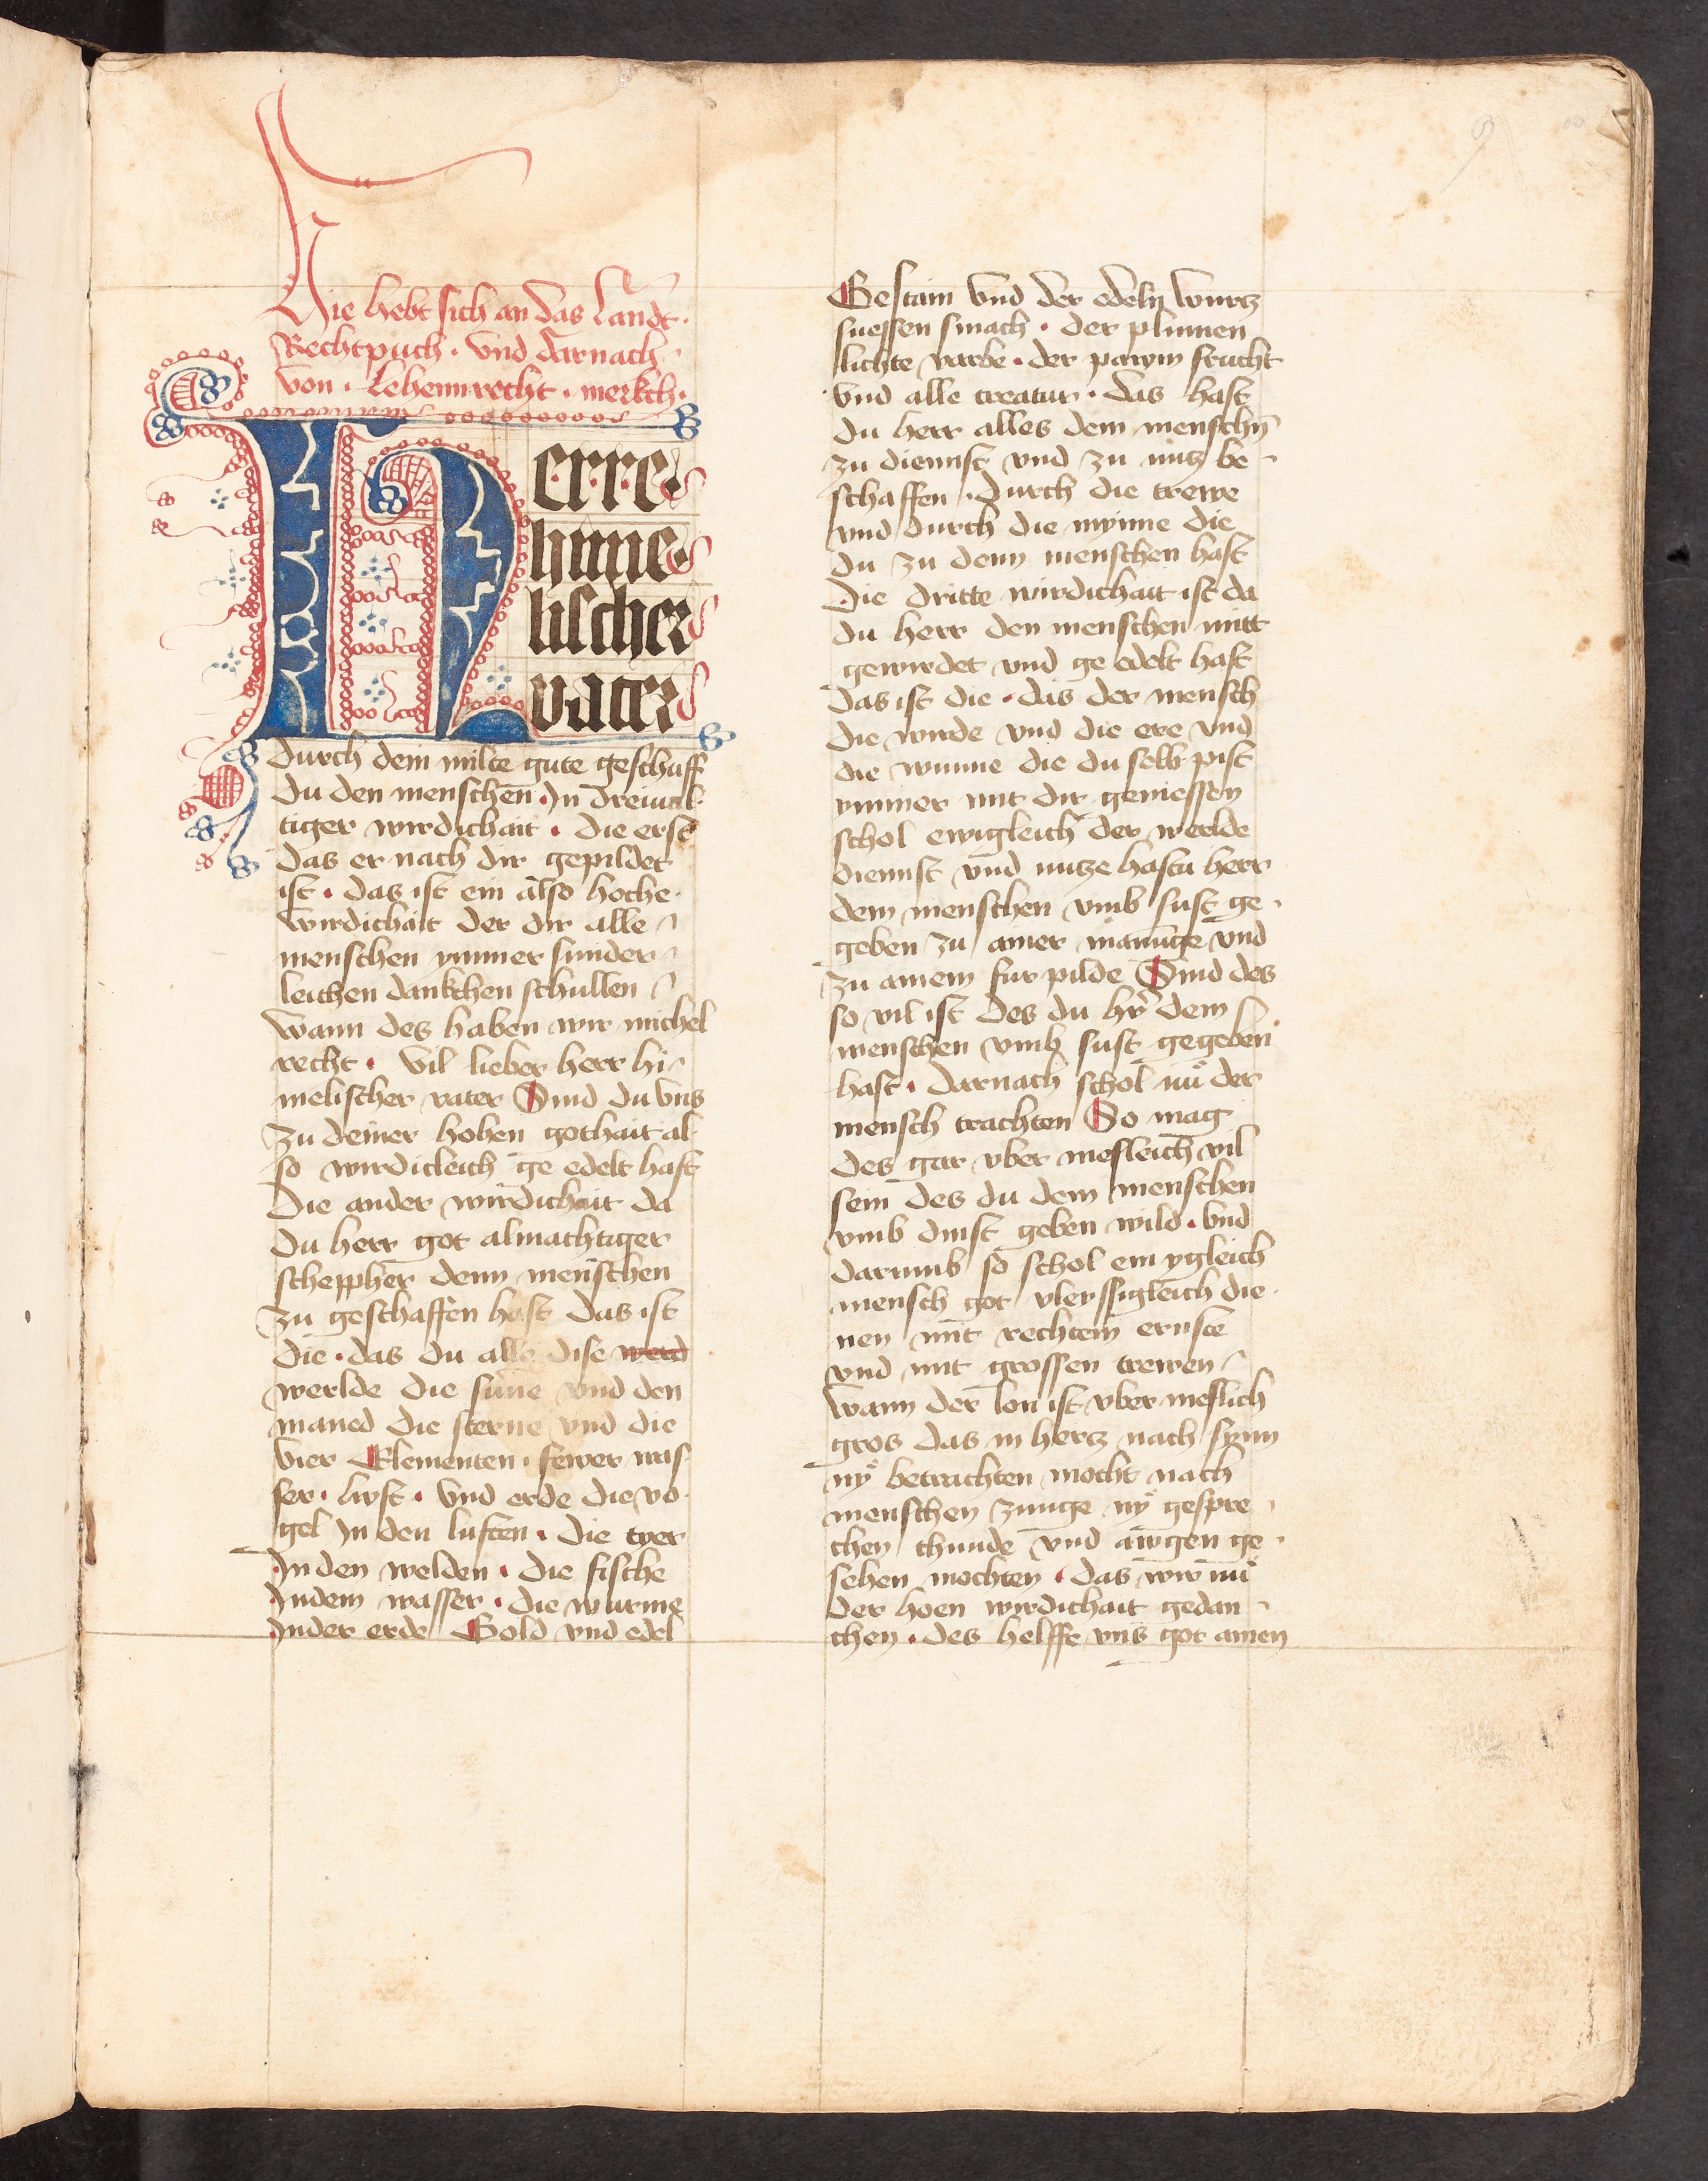 Hie hebt sich an das Landt·
Rechtpuch · vnd darnach
von · Lehennrecht · merkch·
Herre
hime
lischer
vater
durch dein milte gute geschaff
du den menschen̄ · In dreiual
tiger wirdichait · die erst
das er nach dir gepildet
ist · das ist ein also hoche·
wirdichait der dir alle
menschen ymmer sunder
leichen dankchen schullen
wann des haben wir michel
recht · vil lieber herr hi
melischer vater Sind du vns
zu deiner hohen gothait al
so wirdicleich ge edelt hast
Die ander wirdichait da
Du herr got almachtiger
scheppher denn menschen
zu geschaffen hast das ist
die · das du alle dise werd
werlde die sunne vnd den
maned die sterne vnd die
vier Elementen · fewer was
ser · luft · vnd erde die vo
gel In den luften · die tyer
In den welden · die fische
Indem wasser · die wurme
Inder erde Gold vnd edel
Gestain vnd der edeln wurcz
suessen smach · der plumen
lichte varbe · der pawm frucht
vnd alle creatur · das hast
du herr alles dem menschn̄
zu diennst vnd zu nucz be
schaffen · durch die trewe
vnd durch die mynne die
du zu denn menschen hast
Die dritte wirdichait ist da
du herr den menschen mitt
gewirdet vnd ge edelt hast
Das ist die · das der mensch
die wirde vnd die ere vnd
die wunne die du selb pist
ymmer mit dir geniessen
schol ewigleich der werlde
diennst vnd nutze hastu herr
dem menschen vmb sust ge
geben zu ainer manunge vnd
zu ainem fur pilde Sind des
so vil ist des du hr̄ dem
menschen vmb sust gegeben
hast · darnach schol nu der
mensch trachten So mag
des gar vber mesleich vil
sein des du dem menschen
vmb dinst geben wild · vnd
darumb so schol ein ygleich
mensch got vleyssigleich die
nen mit rechtem ernste
vnd mit grossen trewen
wann der lon ist vber meslich
gros das in hercz nach synn
ny betrachten mocht nach
menschen zunge ny gespre
chen chunde vnd awgen ge
sehen mochten · das wir nu
der hoen wirdichait gedan
chen · des helffe vns got amen